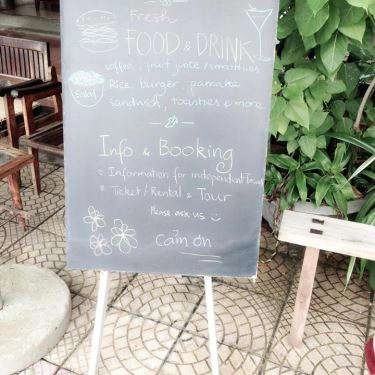 Fresh
FOOD & DRINK
coffee, fruit juice/smoothies
Rice, burger, pancake
Salad
sandwich, toasties & more
Info & Booking
Information for independent travel
Ticket/Rental & Tour
Please ask us
Cảm ơn